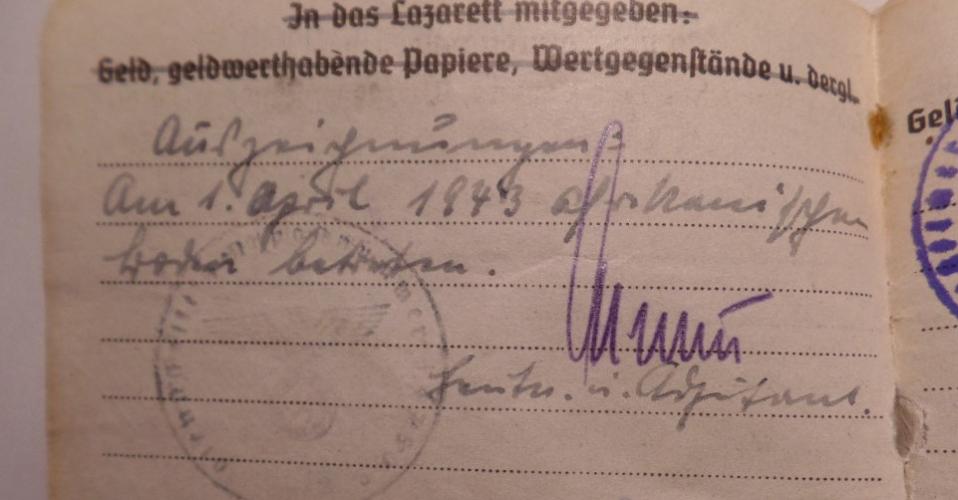 In das Lazarett mitgegeben:
Geld, geldwerthabende Papiere, Wertgegenstände u. dergl.
Auszeichnungen
Am 1. April 1943 afrikanischen
Boden betreten.
Leutn. u. Adjutant.
Gel